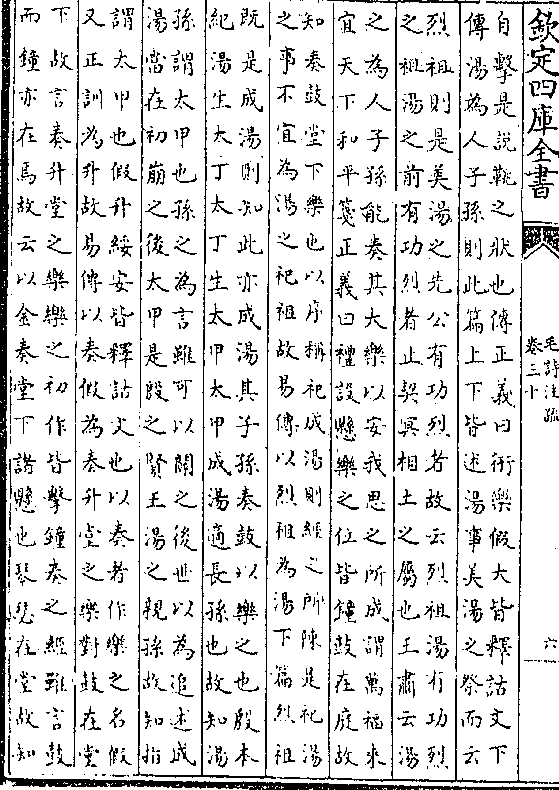 欽定四庫全書
毛詩注疏
卷三十
六
自擊是說鞉之狀也傳正義曰衎樂假大皆釋詁文下
傳湯為人子孫則此篇上下皆述湯事美湯之祭而云
烈祖則是美湯之先公有功烈者故云烈祖湯有功烈
之祖湯之前有功烈者止契冥相土之屬也王肅云湯
之為人子孫能奏其大樂以安我思之所成謂萬福來
宜天下和平箋正義曰禮設懸樂之位皆鐘鼓在庭故
知奏鼓堂下樂也以序稱祀成湯則經之所陳是祀湯
之事不宜為湯之祀祖故易傳以烈祖為湯下篇烈祖
既是成湯則知此亦成湯其子孫奏鼓以樂之也殷本
紀湯生太丁太丁生太甲太甲成湯適長孫也故知湯
孫謂太甲也孫之為言雖可以關之後世以為追述成
湯當在初崩之後太甲是殷之賢王湯之親孫故知指
謂太甲也假升綏安皆釋詁文也以奏者作樂之名假
又正訓為升故易傳以奏假為奏升堂之樂對鼓在堂
下故言奏升堂之樂樂之初作皆擊鐘奏之經雖言鼓
而鐘亦在焉故云以金奏堂下諸懸也琴瑟在堂故知